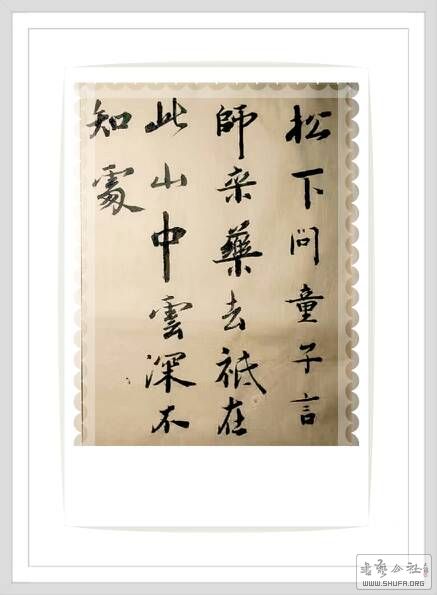 松下問童子言
師采藥去祗在
此山中雲深不
知處
書藝公社
WWW.SHUFA.ORG